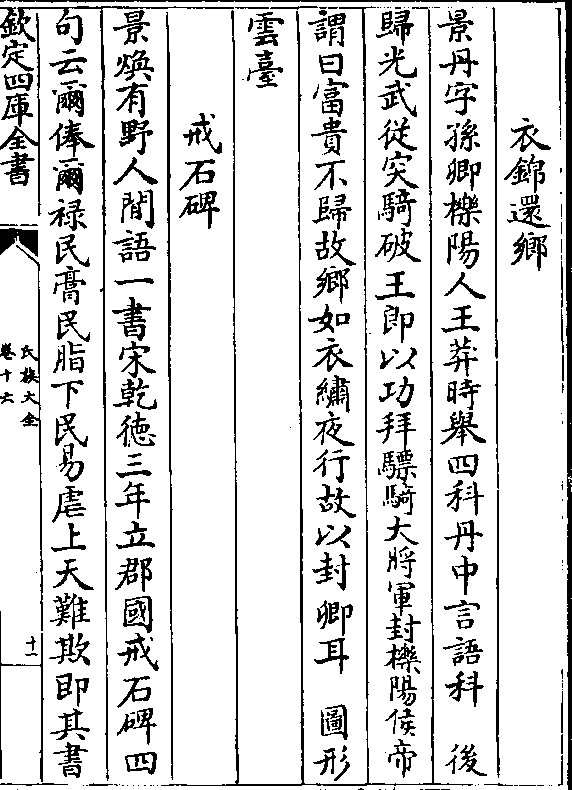 衣錦還鄉
景丹字孫卿櫟陽人王莽時舉四科丹中言語科　後
歸光武從突騎破王郎以功拜驃騎大將軍封櫟陽侯帝
謂曰富貴不歸故鄉如衣繡夜行故以封卿耳　圖形
雲臺
戒石碑
景煥有野人閒語一書宋乾徳三年立郡國戒石碑四
句云爾俸爾禄民膏民脂下民易虐上天難欺即其書
欽定四庫全書
氏族大全
卷十六
十一